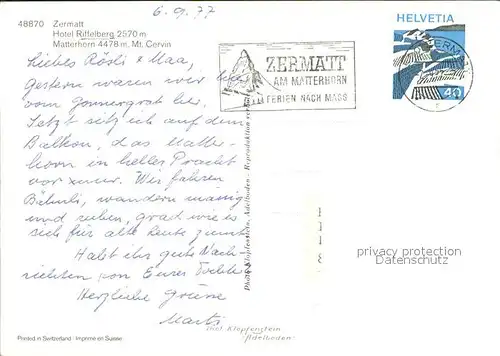 6.9.77
48870 Zermatt
Hotel Riffelberg 2570 m
Matterhorn 4478 m, Mt. Cervin
HELVETIA
40
ZERMATT
AM MATTERHORN
FERIEN NACH MASS
ZERMATT
Liebes Rösli & Maa,
Gestern waren wir
vom Gornergrat her.
Jetzt sitz ich auf dem
Balkon, das Matter-
horn in heller Pracht
vor Wir fahren
Bähnli, wandern mässig
und ruhen, grad wie es
sich für alte Leute ziemt
Habt ihr gute Nach-
richten von Eurer
Herzliche Grüsse
Photo Klopfenstein, Adelboden - Reproduktion
privacy protection
Datenschutz
Phot. Klopfenstein
Adelboden
Printed in Switzerland - Imprimé en Suisse